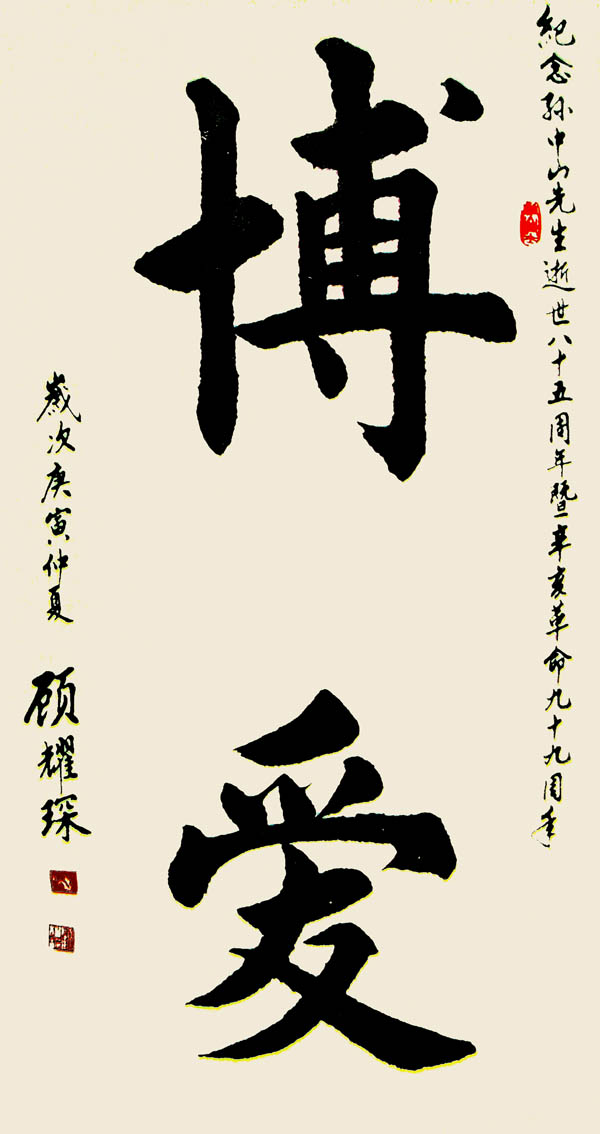 紀念孙中山先生逝世八十五周年暨辛亥革命九十九周年
博爱
歲次庚寅仲夏
顾耀琛